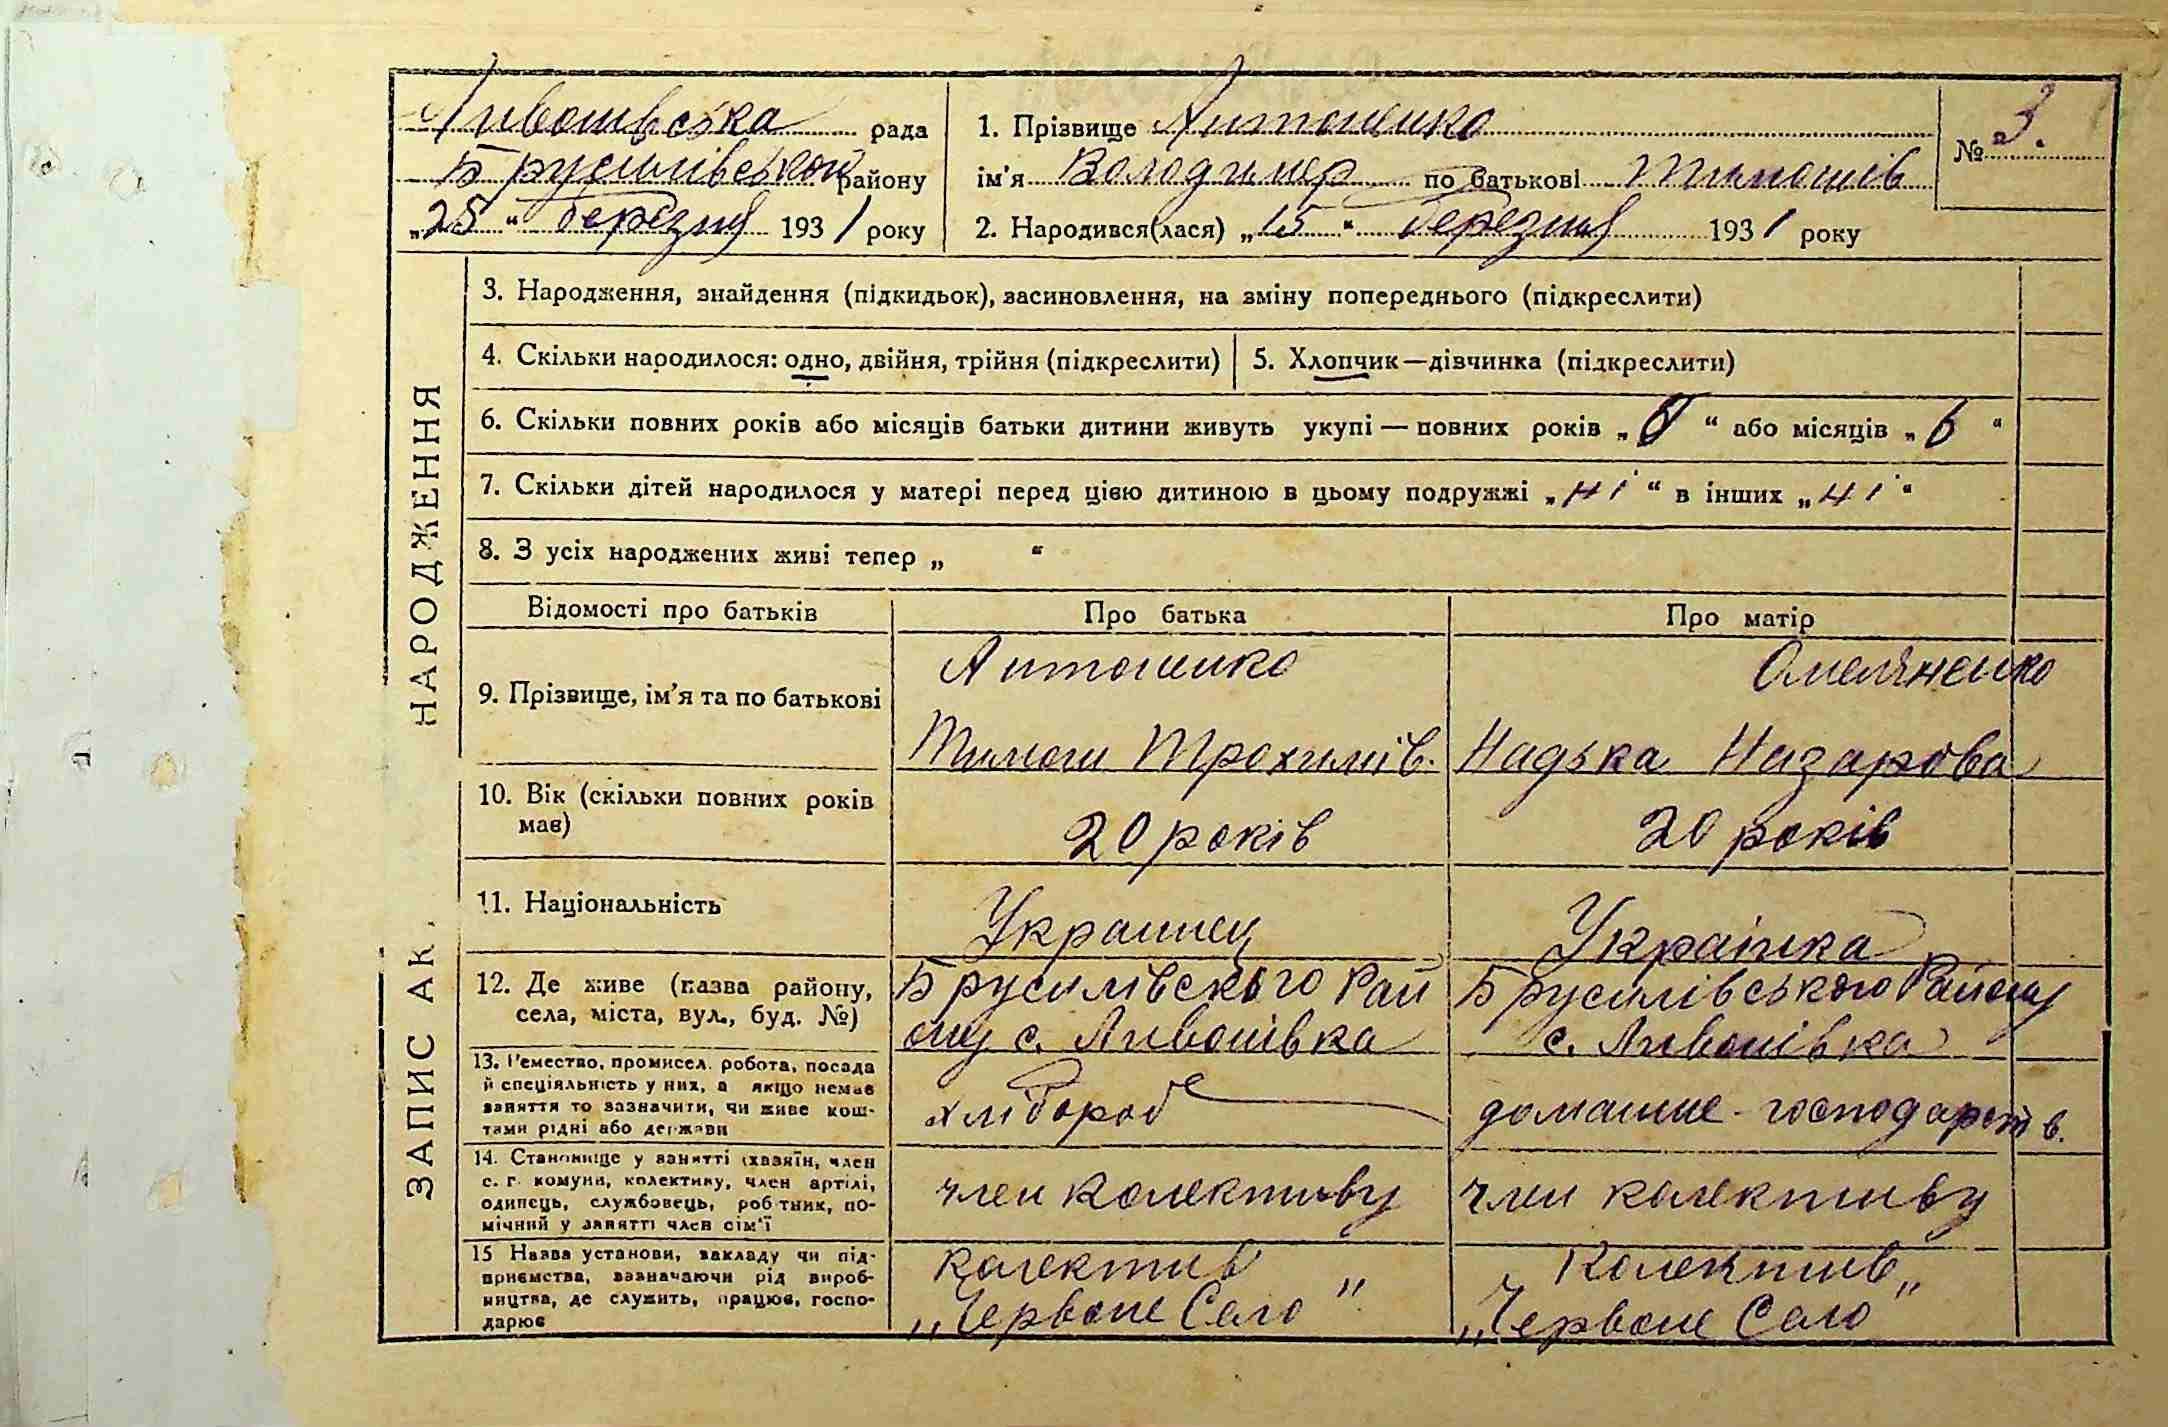 Ливошівська рада
Брусилівської району
„25“ березня 1931 року
1. Прізвище Антоненко
ім'я Володимер по батькові Тимошів
2. Народився(лася) „15“ березня 1931 року
№ 3.
НАРОДЖЕННЯ
ЗАПИС АК.
3. Народження, знайдення (підкидьок), засиновлення, на зміну попереднього (підкреслити)
4. Скільки народилося: одно, двійня, трійня (підкреслити)
5. Хлопчик—дівчинка (підкреслити)
6. Скільки повних років або місяців батьки дитини живуть укупі — повних років „0“ або місяців „6“
7. Скільки дітей народилося у матері перед цією дитиною в цьому подружжі „ні“ в інших „ні“
8. З усіх народжених живі тепер „ “
Відомості про батьків
Про батька
Про матір
9. Прізвище, ім'я та по батькові
Антоненко
Тимош Трохимів.
Омеляненко
Надька Назарова
10. Вік (скільки повних років
має)
20 років
20 років
11. Національність
Украинец
Українка
12. Де живе (назва району,
села, міста, вул., буд. №)
Брусилівского Рай
ону с. Ливошівка
Брусилівського Району
с. Ливошівка
13. Ремество, промисел. робота, посада
й спеціяльність у них, а якщо немає
заняття то зазначити, чи живе кош-
тами рідні або держави
хлібороб
домашне-господарств.
14. Становище у занятті (хазяїн, член
с. г. комуни, колективу, член артілі,
одинець, службовець, робітник, по-
мічний у занятті член сім'ї
член колективу
член колективу
15 Назва установи, закладу чи під-
приємства, зазначаючи рід вироб-
ництва, де служить, працює, госпо-
дарює
колектив
„Червоне Село"
Колектив
„Червоне Село"